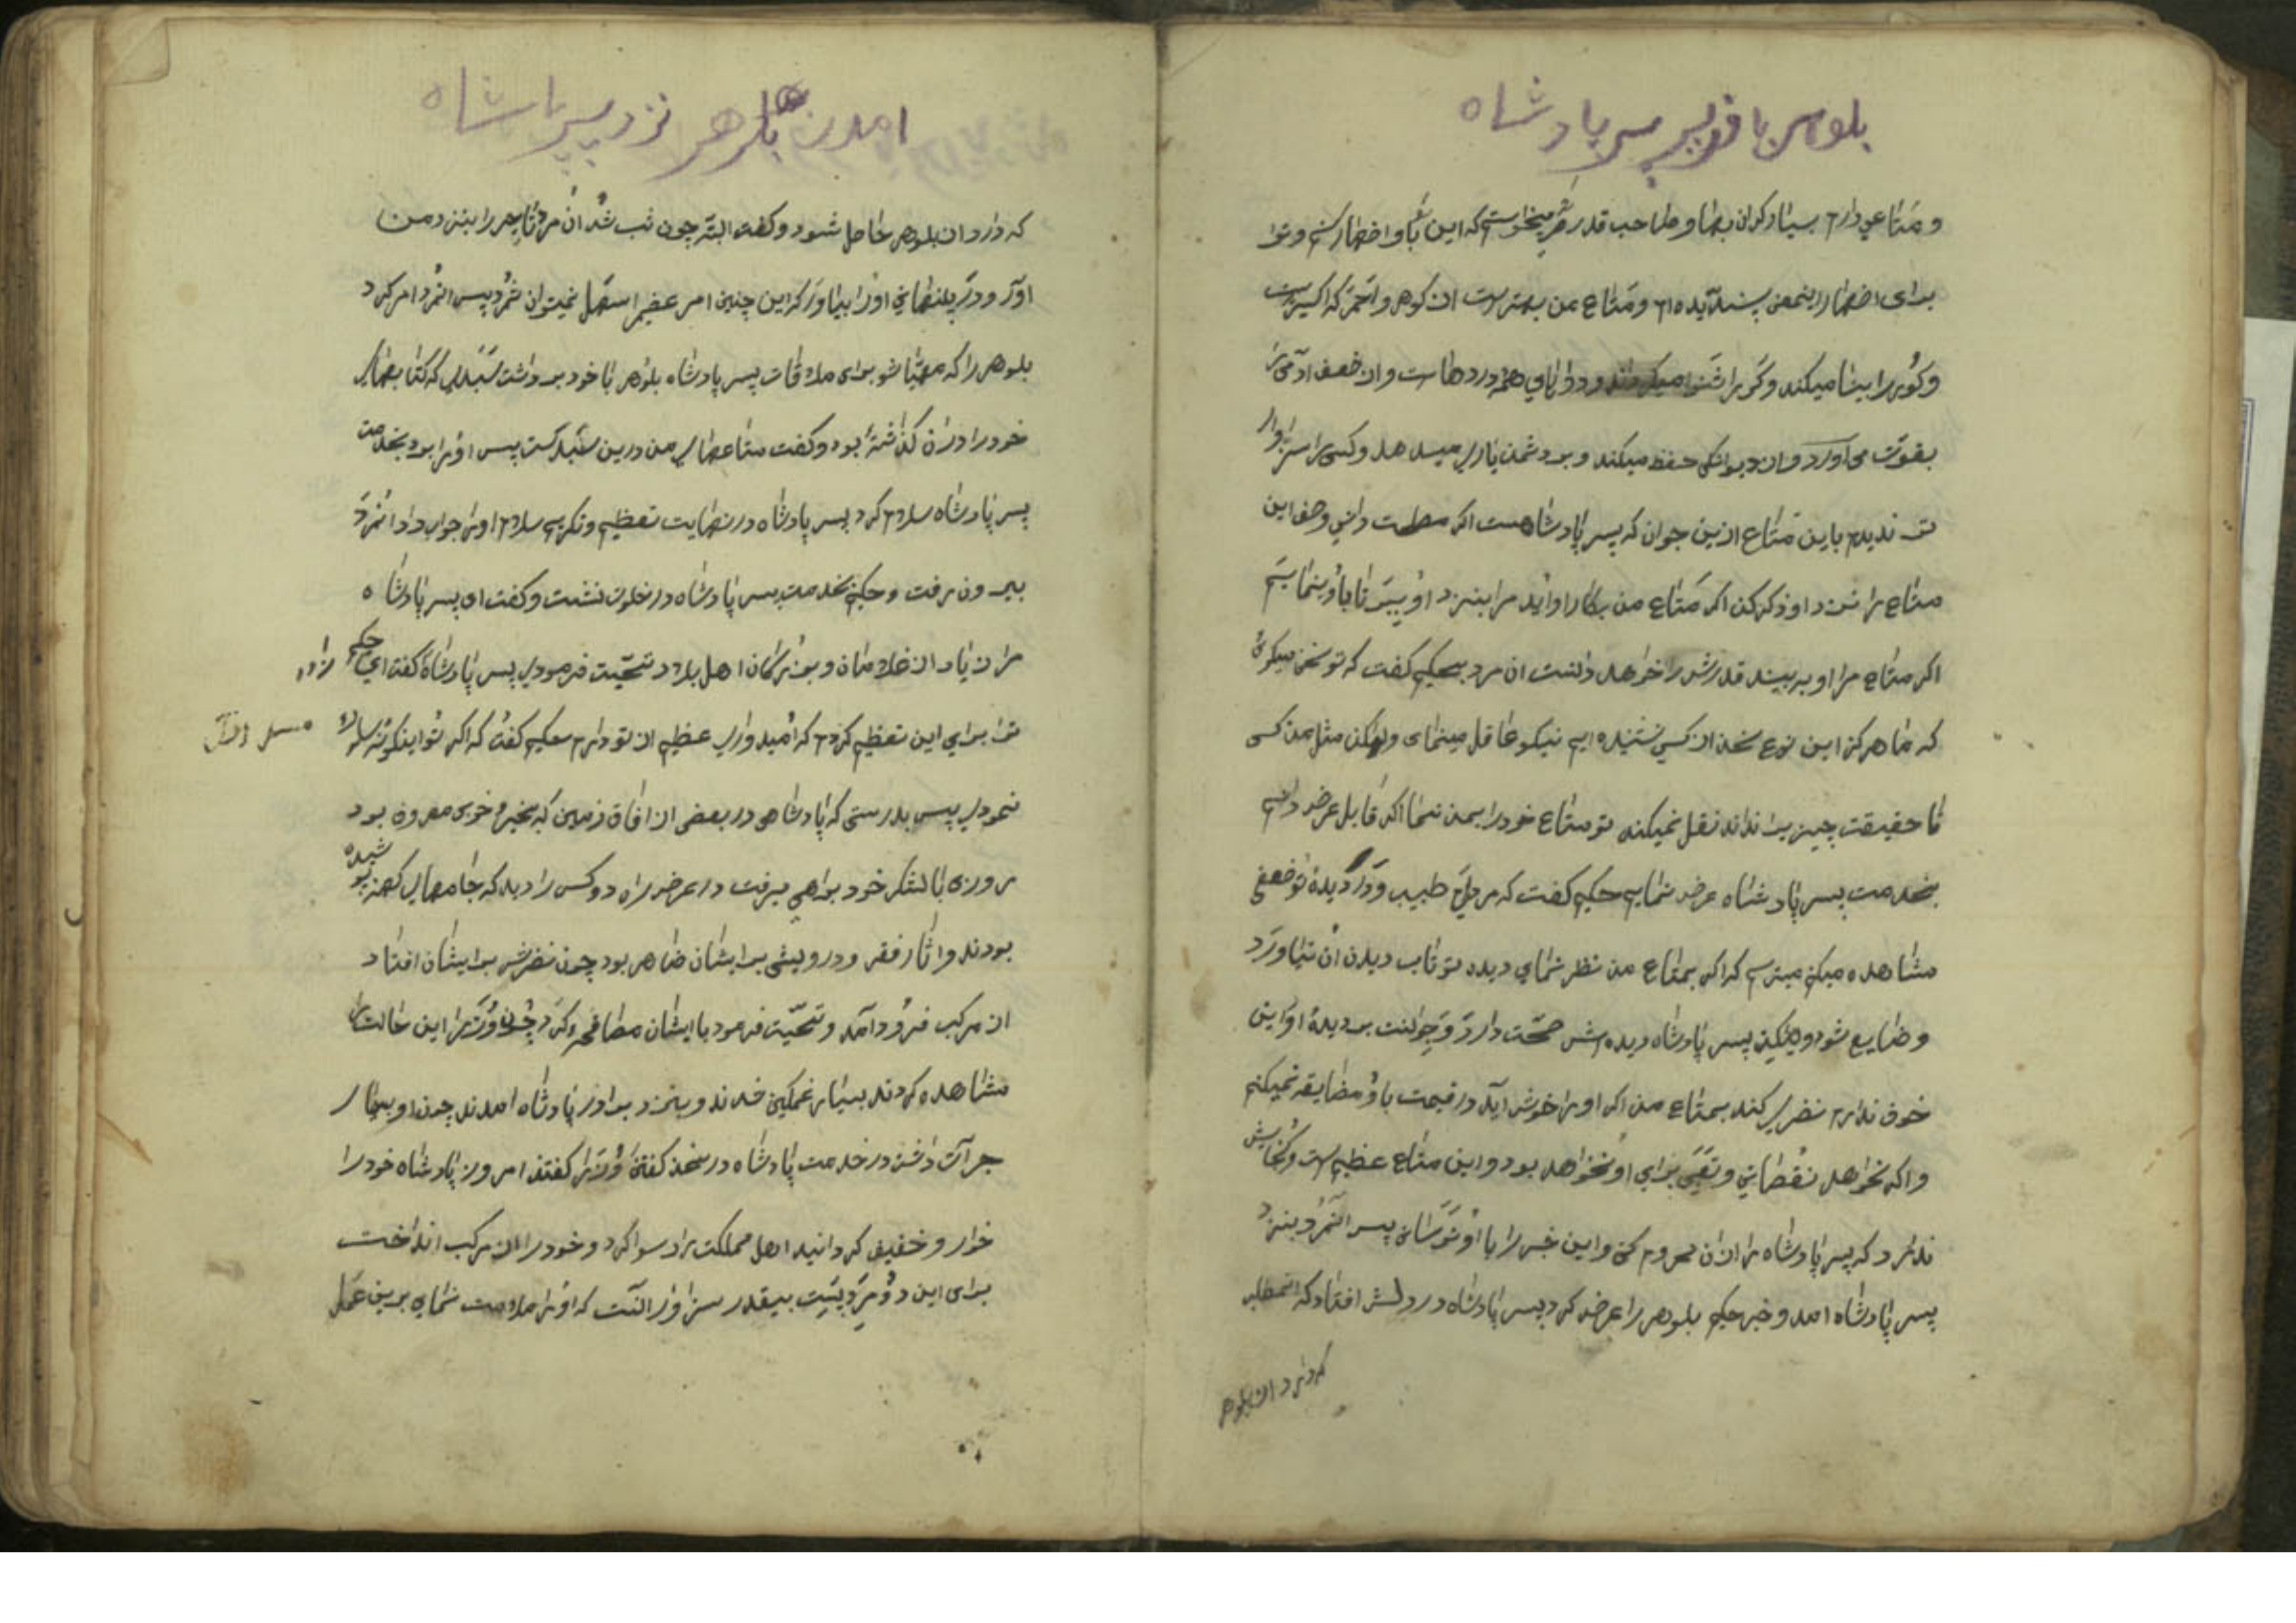 بلوهر با پسر پادشاه
و متاعی دارم بسیار کران بها و صاحب قدر میخواستم که این با و اضهار کنم و ترا
برای اضهار اینمعنی پسندیده ام و متاع من بهتر است از کوهر و احمر که اکسیر است
و کور را بینا میکند و کر را شنوا میکرداند و دوای همه دردها است و از ضعف آدمی را
بقوت می آورد و از دیوانکی حفظ میکند و بر دشمن یاری میدهد و کسی را سزاوار
تر ندیدم باین متاع ازین جوان که پسر پادشاهست اکر مصلحت دانی وصف این
متاع را نزد او ذکر کن اکر متاع من بکار او آید مرا بنزد او ببر تا باو بنمایم
اکر متاع مرا او به بیند قدرش را خواهد دانست ان مرد بحکیم کفت که تو سخن میکوئی
که ما هرکز این نوع سخن از کسی نشنیده ایم نیکو عاقل مینمای ولیکن مثل من کسی
تا حقیقت چیزیرا نداند نقل نمیکند تو متاع خود را بمن نما اکر قابل عرض دانم
بخدمت پسر پادشاه عرض نمایم حکیم کفت که من طبیبم و در دیدهٔ تو ضعفی
مشاهده میکنم میترسم که اکر بمتاع من نظر نمای دیده تو تاب دیدن ان نیاورد
و ضایع شود ولیکن پسر پادشاه دیده اش صحت دارد و جوانست بر دیدهٔ او این
خوف ندارم نضری کند بمتاع من اکر او را خوش آید در قیمت با او مضایقه نمیکنم
و اکر نخواهد نقصانی و تعبی برای او نخواهد بود و این متاع عظیم است و کنجایش
ندارد که پسر پادشاه را از ان محروم کنی و این خبر را باو نرسانی پس انمرد بنزد
پسر پادشاه امد و خبر حکیم بلوهر را عرض کرد پسر پادشاه در دلش افتاد که انمطلبی
که دارد از بلوهر
امدن بلوهر نزد پسر پادشاه
که دارد از بلوهر حاصل شود و کفت البته چون شب شد ان مرد تاجر را بنزد من
آور و در پنهانی او را بیاور که این چنین امر عضیم را سهل نمیتوان شمرد پس انمرد امر کرد
بلوهر را که مهیا شو برای ملاقات پسر پادشاه بلوهر با خود برداشت سبدی که کتابهای
خود را در ان کذاشته بود و کفت متاعهای من درین سبد است پس او را برد بخدمت
پسر پادشاه سلام کرد پسر پادشاه در نهایت تعظیم و تکریم سلام او را جواب داد انمرد
بیرون رفت و حکیم بخدمت پسر پادشاه در خلوت نشست و کفت ای پسر پادشاه
مرا زیاد از غلامان و بزرکان اهل بلاد تحیت فرمودی پسر پادشاه کفت ای حکیم
ترا برای این تعظیم کردم که امیدواری عظیم از تو دارم حکیم کفت که اکر تو اینکونه سلوک
نمودی پس بدرستی که پادشاهی در بعضی از افاق زمین که بخیر و خوبی معروف بود
روزی با لشکر خود براهی میرفت در عرض راه دو کس را دید که جامهای کهنه پوشیده
بودند و اثار فقر و درویشی بر ایشان ضاهر بود چون نضرش بر ایشان افتاد
از مرکب فرود آمد و تحیت فرمود با ایشان مصافحه کرد چون وزرا این حالت را
مشاهده کردند بسیار غمکین شدند و بنزد برادر پادشاه امدند چون او بسیار
جرأت داشت در خدمت پادشاه در سخن کفتن وزرا کفتند امروز پادشاه خود را
خوار و خفیف کردانید اهل مملکت را رسوا کرد و خود را از مرکب انداخت
برای این دو مرد پست بیقدر سزاوار انست که او را ملامت نمای برین عمل